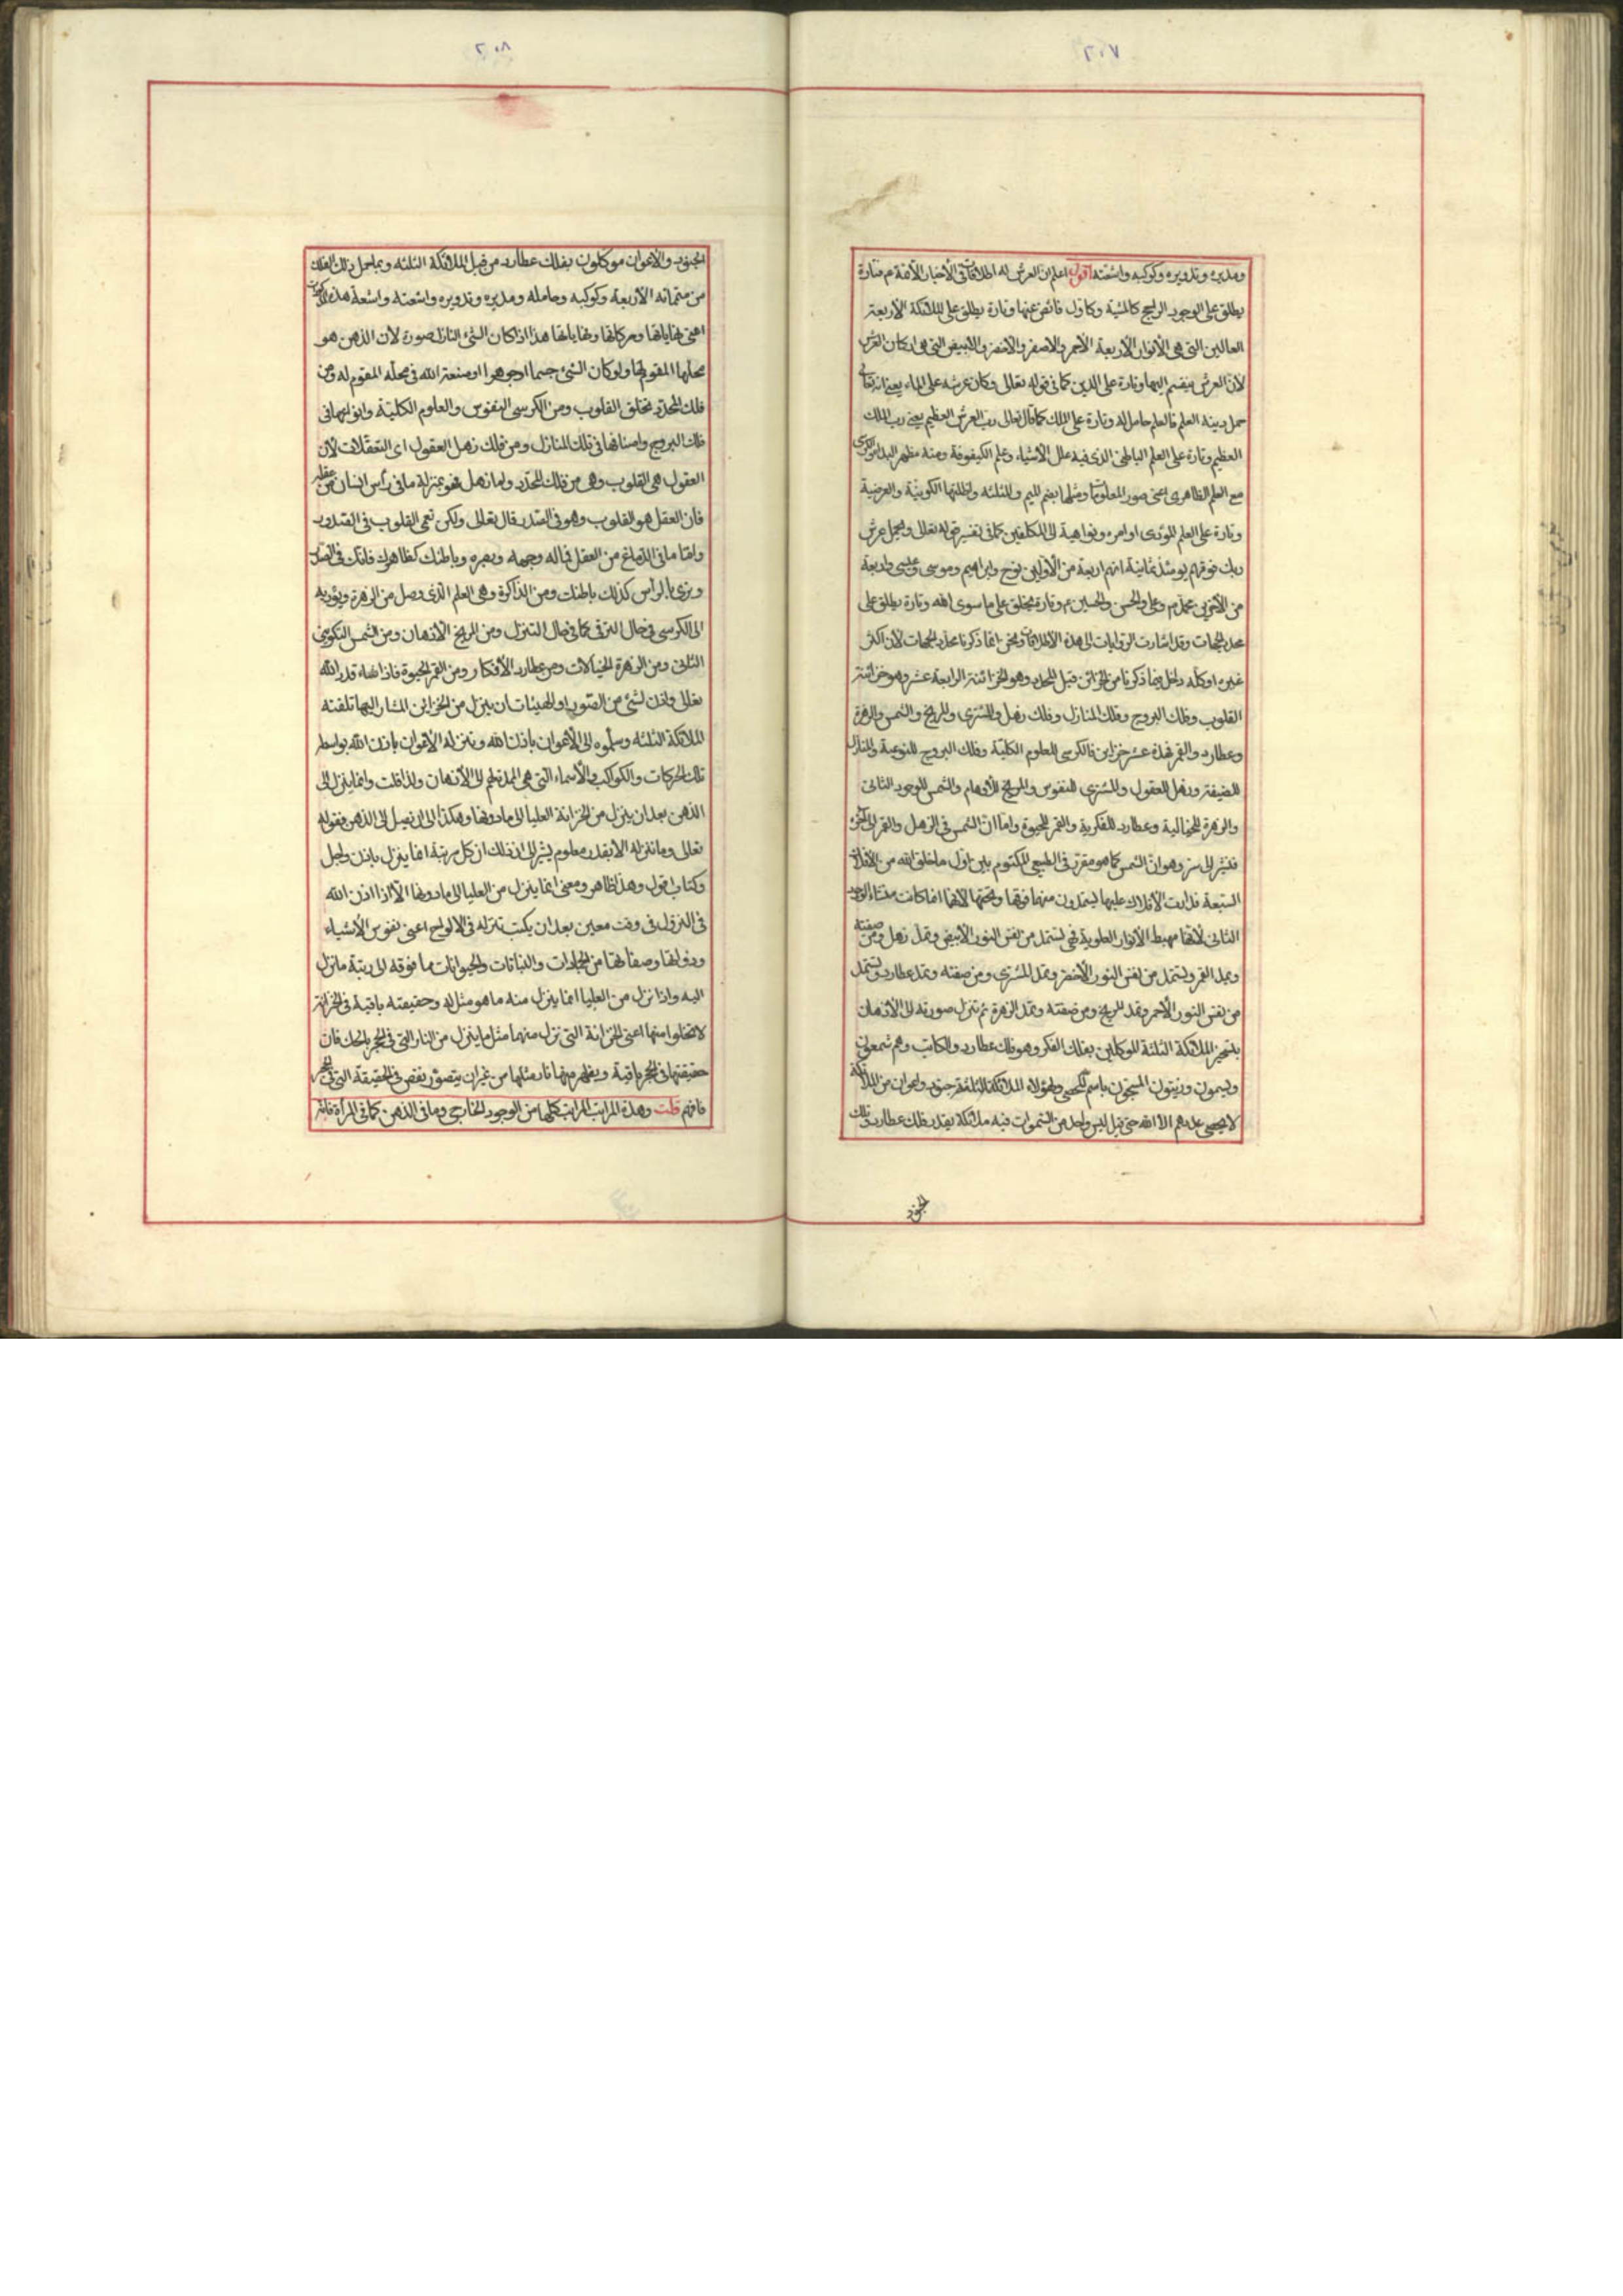 ٢٠٧
ومديره وتدويره وكوكبه واشعته اقول اعلم ان العرش له اطلاقات في الأخبار فتارة
يطلق على الوجود الراجح كالمشية وكاول فائض عنها وتارة يطلق على الملائكة الأربعة
العالين التي هي الأنوار الأربعة الأحمر والأصفر والأخضر والأبيض التي هي اركان العرش
لأن العرش ينقسم اليها وتارة على الدين كما في قوله تعالى وكان عرشه على الماء يعني انه تعالى
حمل دينه العلم فالعلم حامل له وتارة على الملك كما قال تعالى رب العرش العظيم يعني رب الملك
العظيم وتارة على العلم الباطن الذي فيه علل الأشياء وعلم الكيفوفة ومنه مظهر البداء
مع العلم الظاهري اعني صور المعلومات ومثلها بضم الميم والثلثه واظلتها الكونية والعرضية
وتارة على العلم المؤدى اوامره ونواهيه الى المكلفين كما في تفسير قوله تعالى ويحمل عرش
ربك فوقهم يومئذ ثمانية انهم اربعة من الأولين نوح وابراهيم وموسى وعيسى واربعة
من الآخرين محمد وعلي والحسن والحسين ع وتارة يطلق على ما سوى الله وتارة يطلق على
محدد الجهات وقد اشارت الروايات الى هذه الأطلاقات ونحن انما ذكرنا محدد الجهات لأن اكثر
غيره اوكله داخل فيما ذكرنا من الخزائن قبل المحدد وهو الخزانة الرابعة عشر وهو خزانة
القلوب وفلك البروج وفلك المنازل وفلك زحل والمشتري والمريخ والشمس والزهرة
وعطارد والقمر فهذه عشر خزاين فالكرسي للعلوم الكلية وفلك البروج للنوعية والمنازل
للصنفية وزحل للعقول والمشتري للنفوس والمريخ للأوهام والشمس للوجود الثاني
والزهرة للخيالية وعطارد للفكرية والقمر للحيوة واما ان الشمس في الزحل والقمر الى آخره
فنشير الى سر وهو ان الشمس كما هو مقرر في الطبيعي المكتوم باين اول ما خلق الله من الأفلاك
السبعة فدارت الأفلاك عليها ليستمدون منها فوقها وتحتها لأنها انما كانت منشاء الوجود
الثاني لأنها مهبط الأنوار العلوية فهي تستمد من نفس النور الأبيض وتمد زحل ومن صفته
وتمد القمر وتستمد من نفس النور الأخضر وتمد المشتري ومن صفته وتمد عطارد وتستمد
من نفس النور الأحمر وتمد المريخ ومن صفته وتمد الزهرة ثم تنزل صورته الى الأذهان
بتسخير الملائكة الثلثة الموكلين بفلك الفكر وهو فلك عطارد والكاتب وهم شمعون
وسيمون وزيتون المسبحون باسم المحصى ولهؤلاء الملائكة الثلثة جنود واعوان من الملائكة
لا يحصى عددهم الا الله حتى قيل ليس واحد من السموات فيه ملائكة بقدر فلك عطارد وتلك
الجنود
٢٠٨
الجنود والأعوان موكلون بفلك عطارد من قبل الملائكة الثلثه وبما حمل ذلك الفلك
من متمماته الأربعة وكوكبه وحامله ومديره وتدويره واشعته واشعة هذه الحركات
اعني نهاياتها وحركاتها ونهاياتها هذا اذا كان الشئ النازل صورة لأن الذهن هو
محلها المقوم لها ولو كان الشئ جسما او جوهرا او صنعه الله في محله المقوم له ومن
فلك المحدد يخلق القلوب ومن الكرسي النفوس والعلوم الكلية وانواعها في
فلك البروج واصنافها في فلك المنازل ومن فلك زحل العقول اى التعقلات لأن
العقول هي القلوب وهى من فلك المحدد واما زحل فهو بمنزلة ما في رأس انسان من عقله
فان العقل هو القلوب وهو في الصدر قال تعالى ولكن تعمى القلوب التى في الصدور
واما ما في الدماغ من العقل فباله وجهه وبصره وباطنك كظاهرك فانك في الصدر
وترى بالرأس كذلك باطنك ومن الذاكرة وهى العلم الذي وصل من الزهرة ويؤديه
الى الكرسى في حال الترقى كما في حال التنزل ومن المريخ الأذهان ومن الشمس التكوينى
الثاني ومن الزهرة الخيالات ومن عطارد الأفكار ومن القمر الحيوة فاذا شاء قدر الله
تعالى واذن لشئ من الصور او الهيئات ان ينزل من الخزاين المشار اليها تلقته
الملائكة الثلثه وسلموه الى الأعوان باذن الله ونزله الأعوان باذن الله بواسطة
تلك الحركات والكواكب والأسماء التي هي المدد لهم الى الأذهان ولذا قلت وانما ينزل الى
الذهن بعد ان ينزل من الخزانة العليا الى ما دونها وهكذا الى ان يصل الى الذهن فقوله
تعالى وما ننزله الا بقدر معلوم يشير الى ان ذلك ان كل مرتبة انما ينزل باذن واجل
وكتاب اقول وهذا ظاهر ومعنى انما ينزل من العليا الى ما دونها الا اذا اذن الله
في النزول في وقت معين بعد ان يكتب تنزله في الالواح اعني نفوس الأشياء
وذواتها وصفاتها من الجمادات والنباتات والحيوانات مما فوقه الى رتبة ما نزل
اليه واذا نزل من العليا انما ينزل منه ما هو مثل له وحقيقته باقية في الخزانة
لا تخلوا منها اعنى الخزانة التي نزل منهما مثل ما ينزل من النار التي في الحجر بالحك فان
حقيقتها في الحجر باقية ويظهر منها نار مثلها من غير ان يتصور نقص في الحقيقة التى في الحجر
فافهم قلت وهذه المراتب المراتب كلها من الوجود الخارجي وما في الذهن كما في المرآة فانه